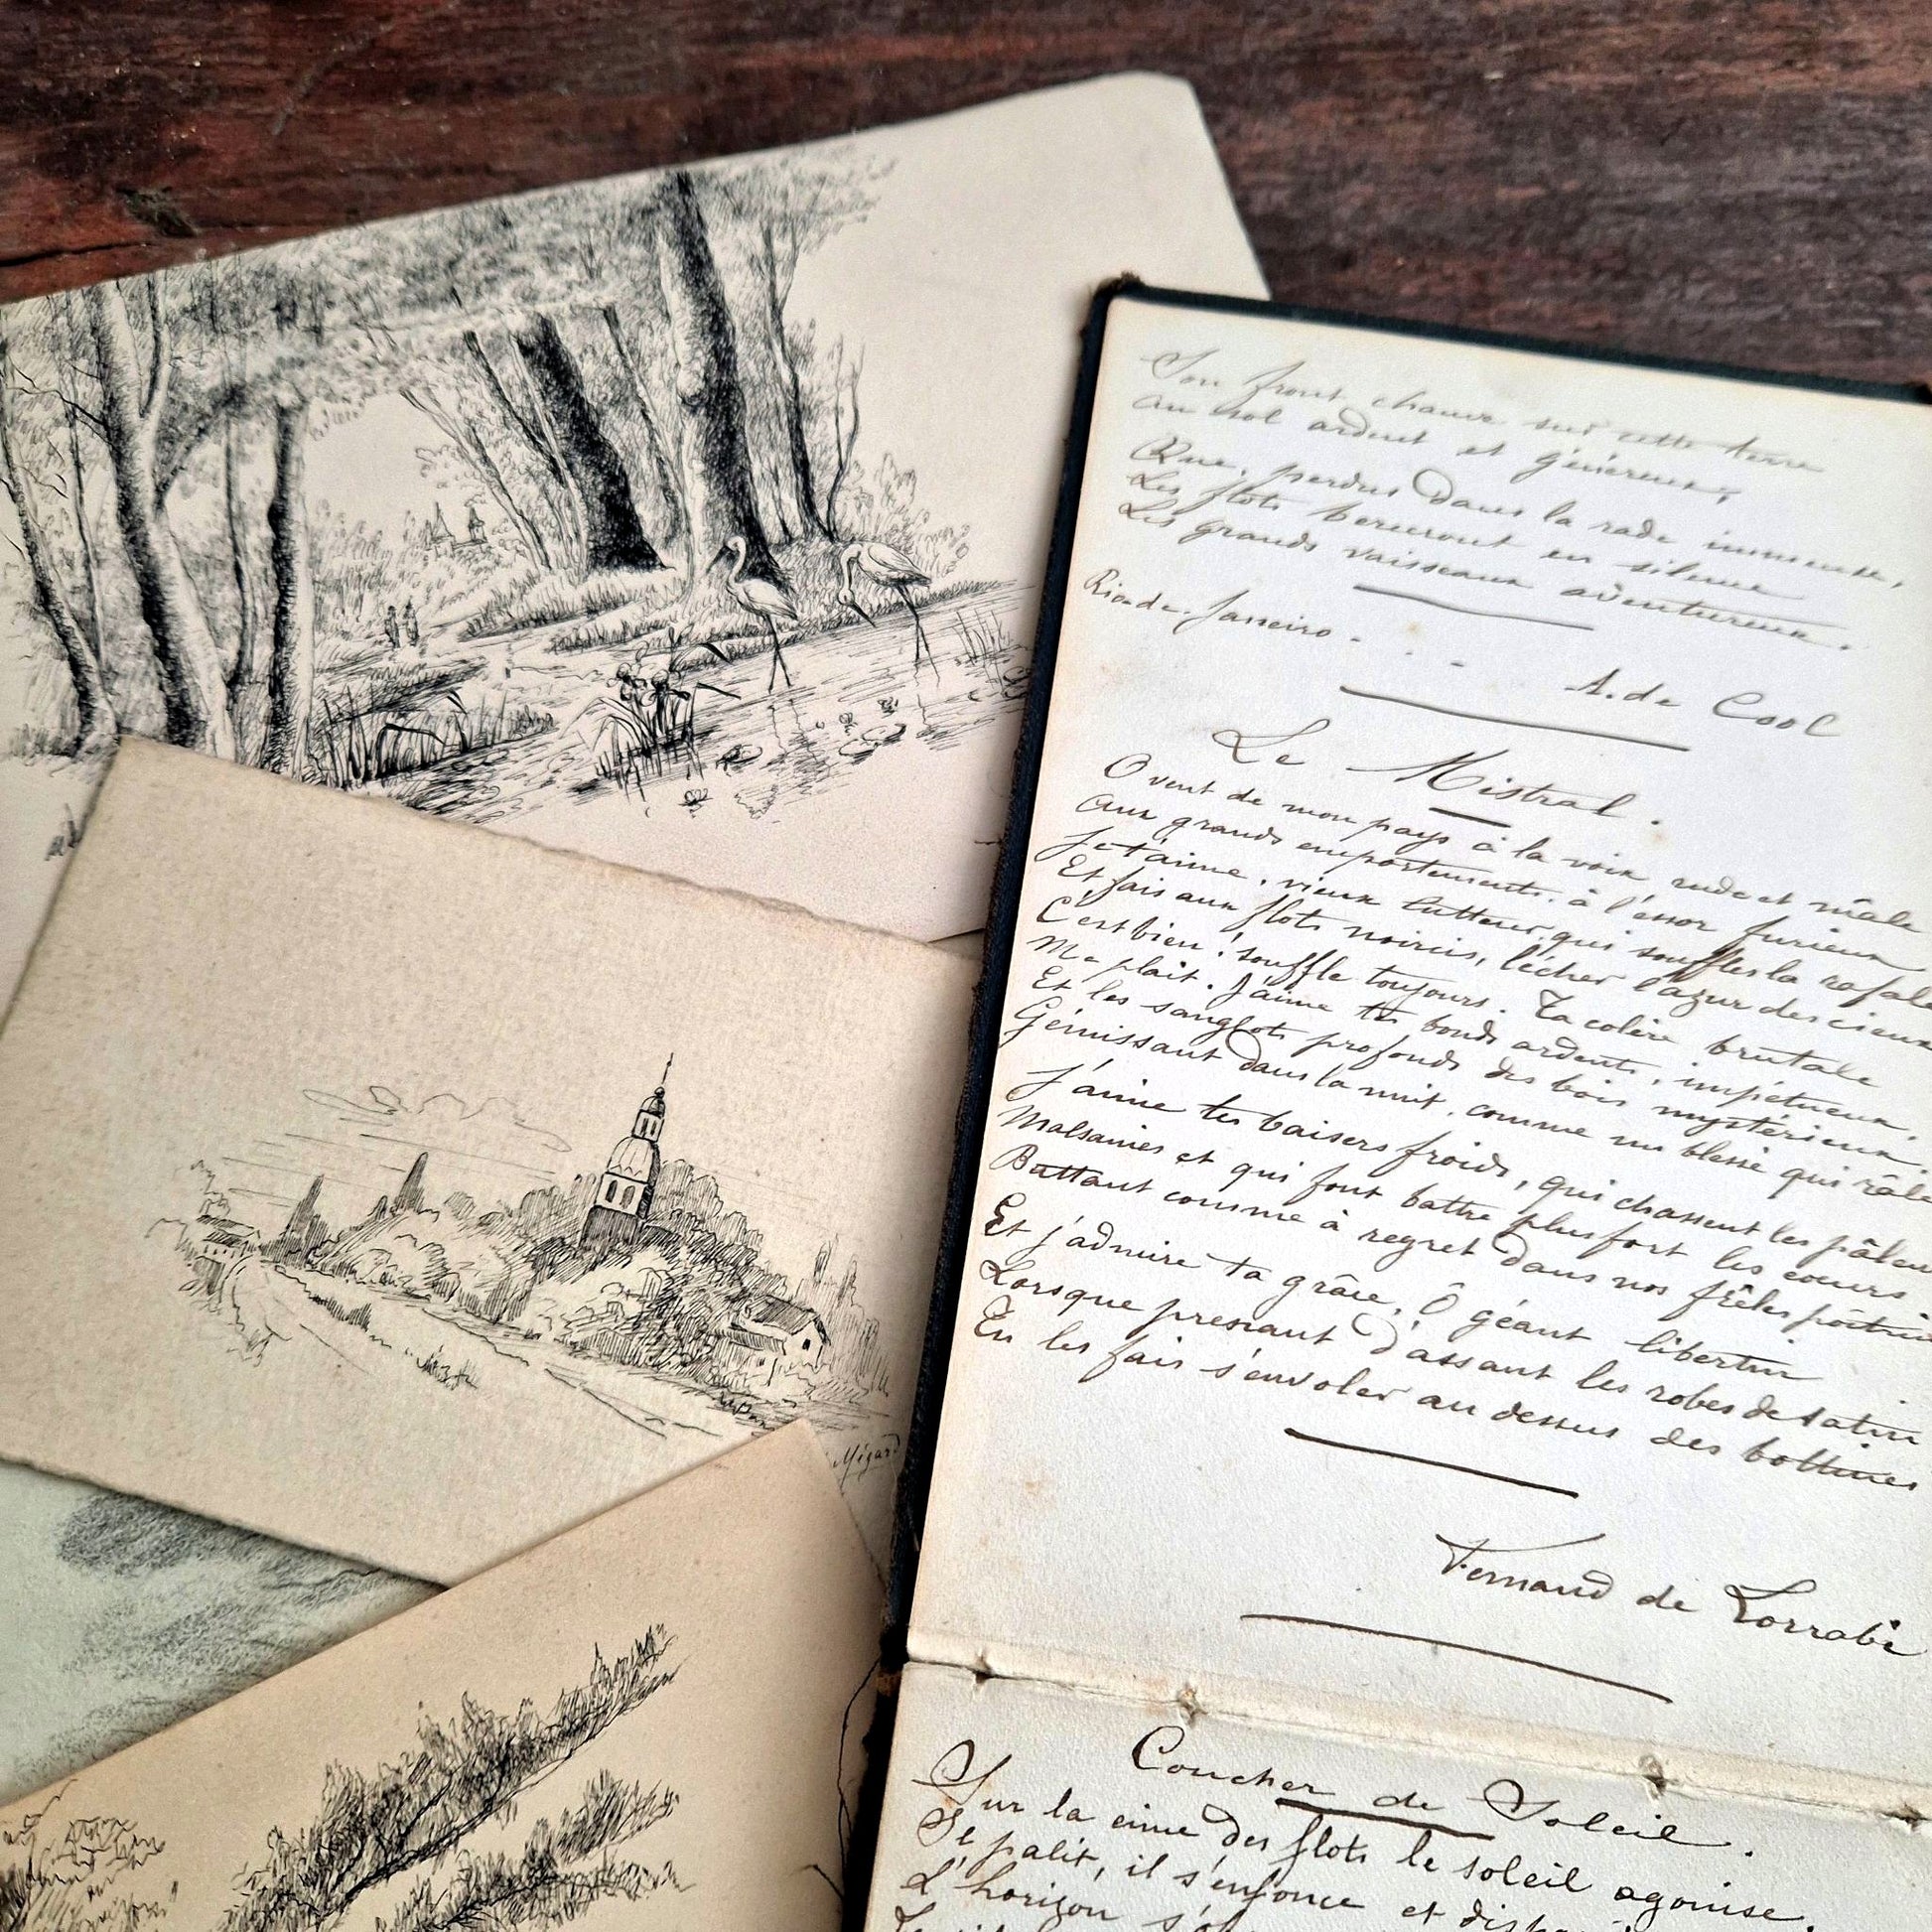 Son front chauve sur cette terre
au sol ardent et généreux;
Que, perdus dans la rade immense,
Les flots berceront en silence
Les grands vaisseaux aventureux.
Rio de Janeiro.
A. de Cool
Le Mistral.
O vent de mon pays à la voix rude et mâle
Aux grands emportements. à l'essor furieux
Je t'aime, vieux lutteur, qui souffles la rafale
Et fais aux flots noircis, lécher l'azur des cieux
C'est bien! souffle toujours. Ta colère brutale
Me plait. J'aime tes bonds ardents, impétueux,
Et les sanglots profonds des bois mystérieux
Gémissant dans la nuit, comme un blessé qui râle
J'aime tes baisers froids, qui chassent les
Malsaines et qui font battre plus fort les coeurs
Battant comme à regret dans nos frêles
Et j'admire ta grâce, Ô géant libertin
Lorsque prenant d'assaut les robes de satin
Tu les fais s'envoler au dessus des bottines
Fernand de Lorrabe
Mégard
Coucher de Soleil.
Sur la cime des flots le soleil agonise,
Il palit, il s'enfonce et
L'horizon